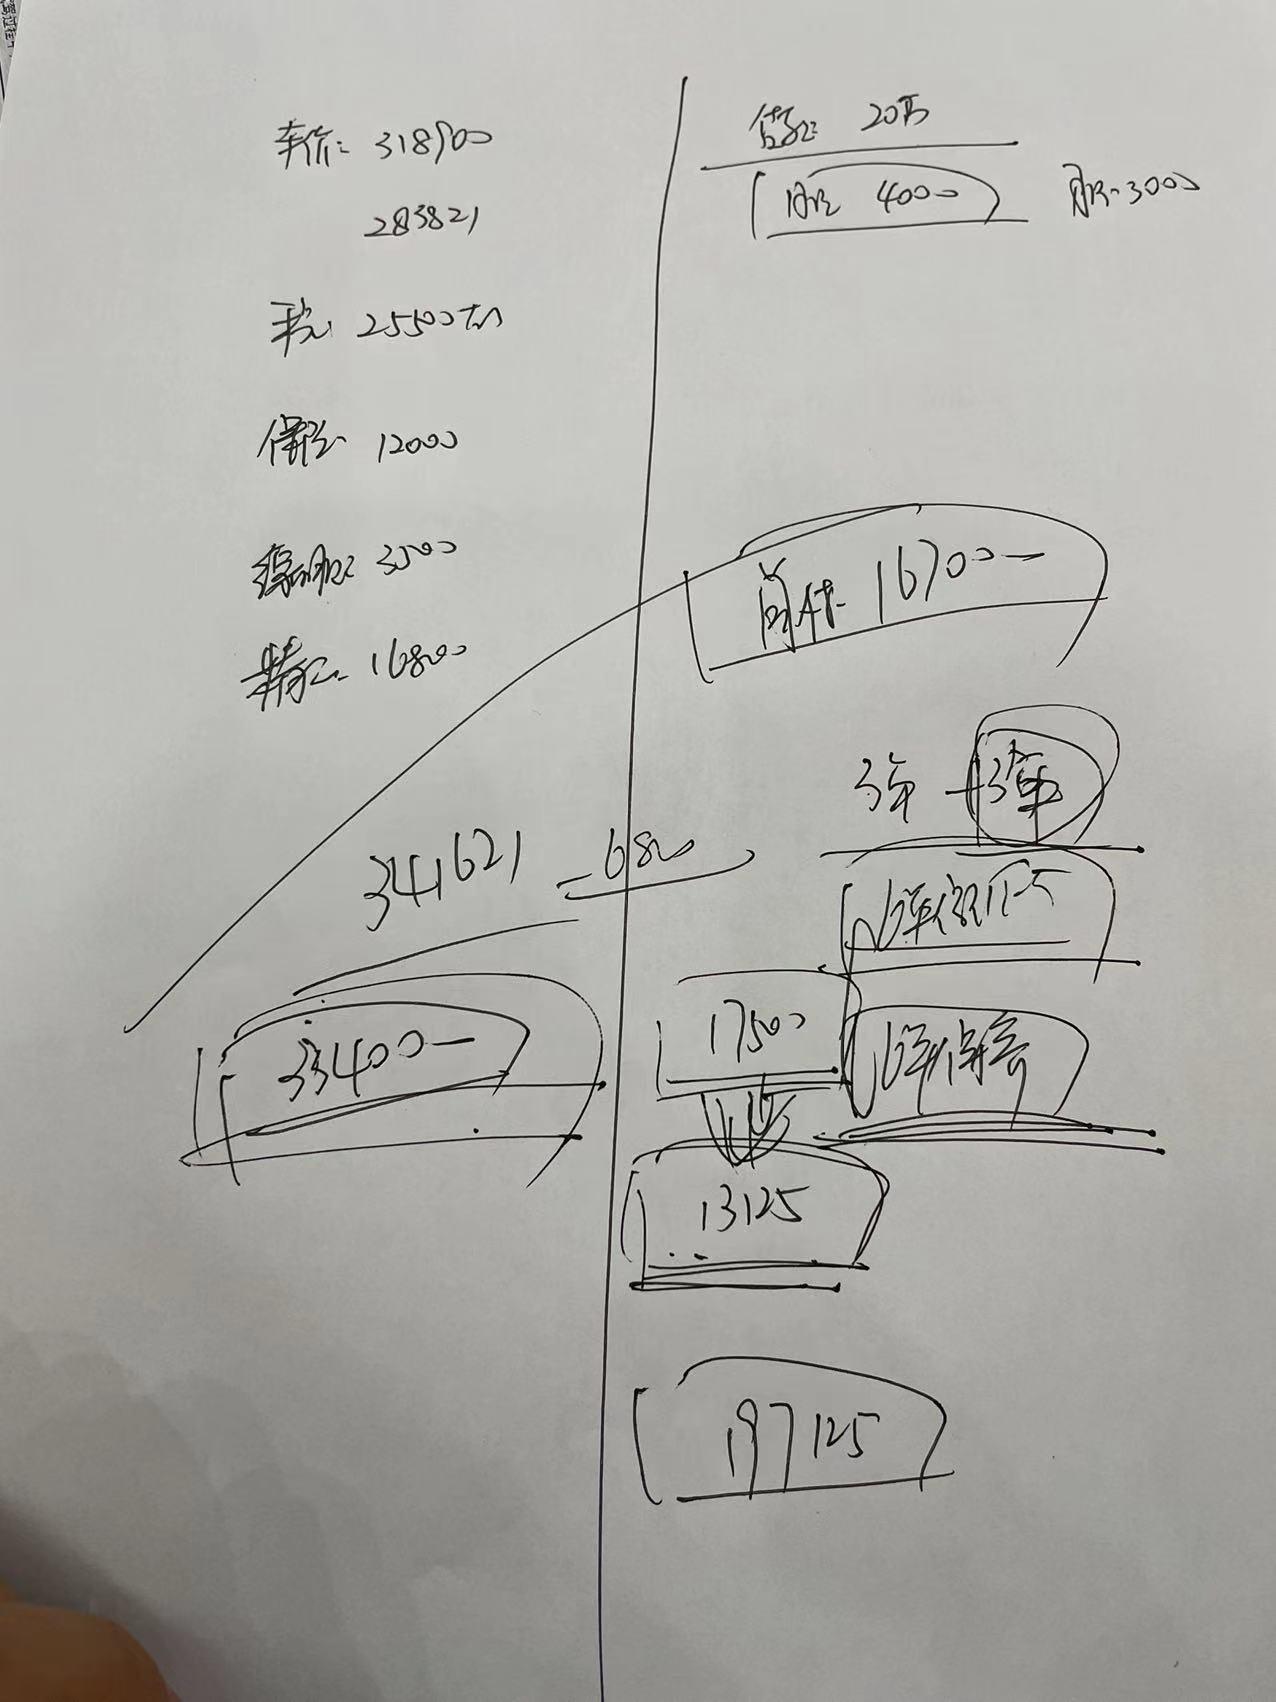 车价: 318900
283821
税: 25500左右
保险 12000
综合服 3500
精品 16800
341621 -6800
33400-
贷款: 20万
月还 4000
月还 3000
首付 16700-
3年 +3年
17500
13125
197125